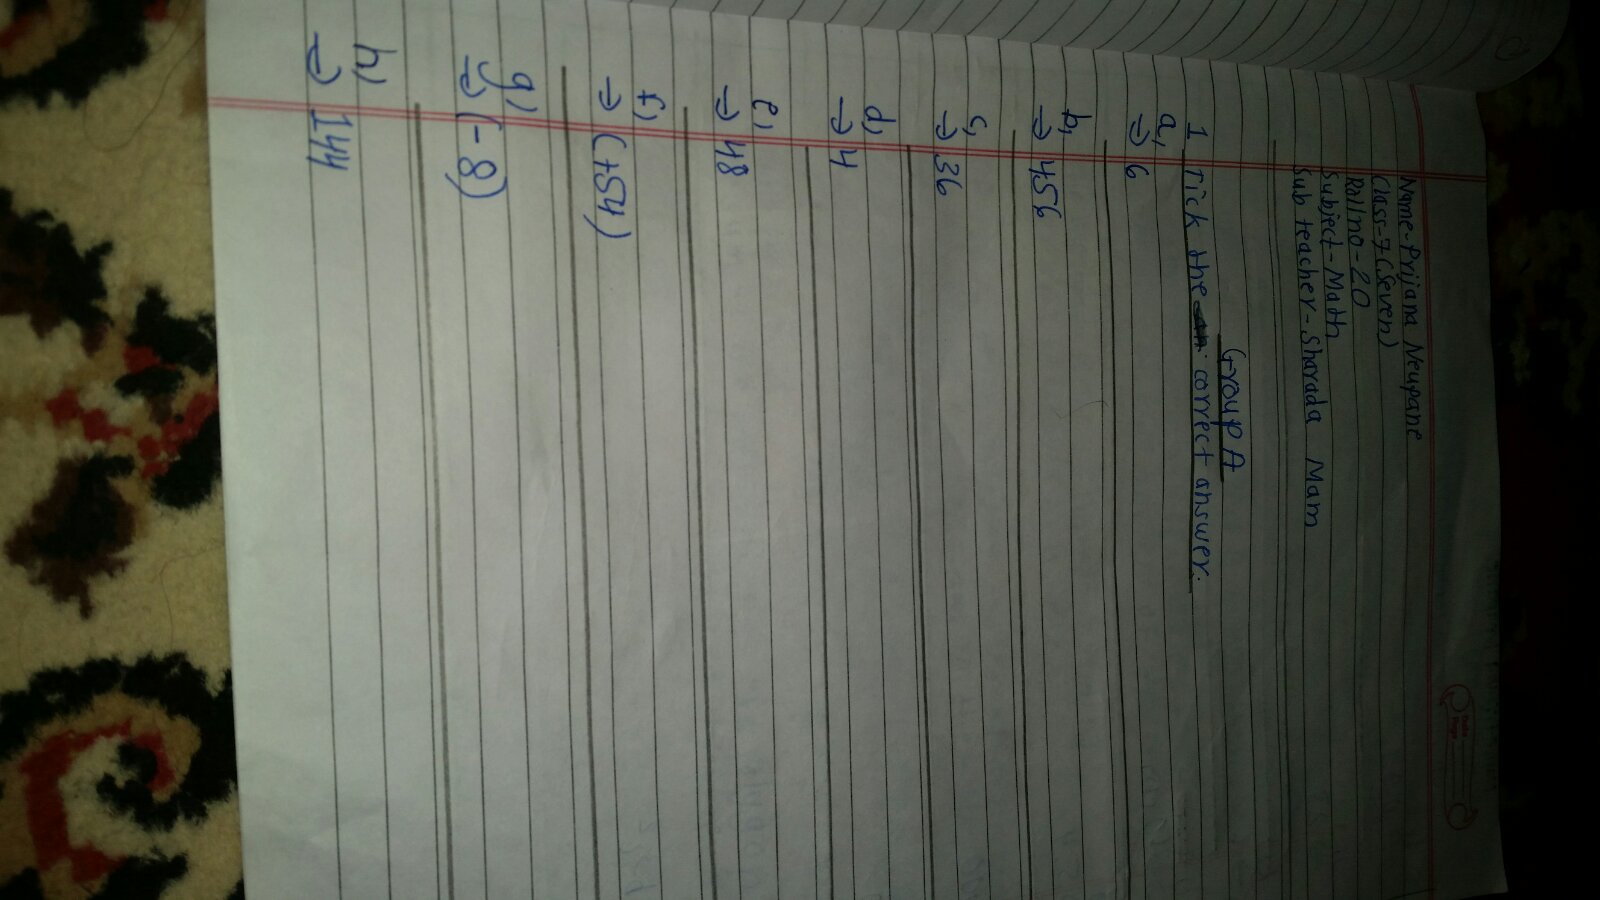 Name-Prijana Neupane
Class-7(Seven)
Rollno-20
Subject-Math
Sub teacher-Sharada Mam
Group A
1 Tick the correct answer.
a,
→ 6
b,
→ 456
c,
→ 36
d,
→ 4
e,
→ 48
f,
→ (+54)
g,
→ (-8)
h,
→ 144